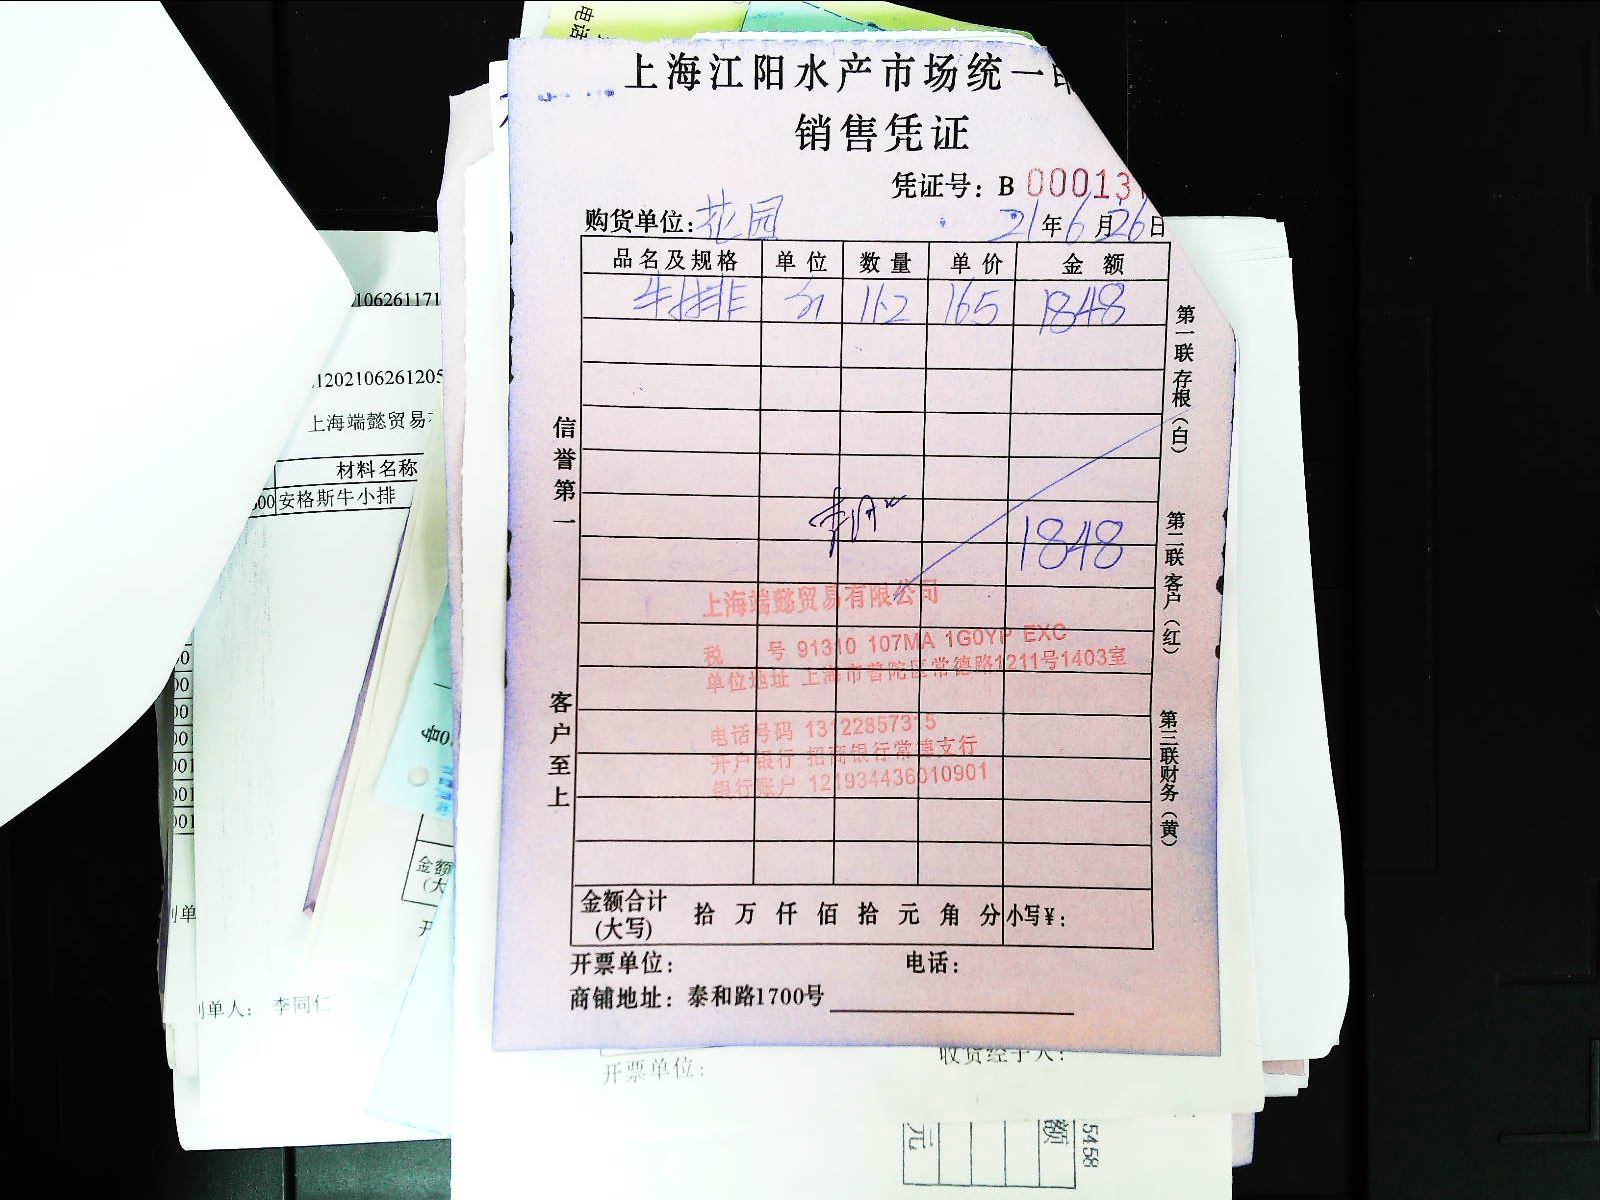 电话
上海江阳水产市场统一
销售凭证
凭证号：B 00013
购货单位：花园 21年6月26日
品名及规格 单位 数量 单价 金额
牛排 斤 11.2 165 1848
1848
信誉第一
客户至上
第一联存根（白）
第二联客户（红）
第三联财务（黄）
上海端懿贸易有限公司
税 号 91310 107MA 1G0YP EXC
单位地址 上海市普陀区常德路1211号1403室
电话号码 13122857315
开户银行 招商银行常德支行
银行账户 121934436010901
金额合计(大写) 拾 万 仟 佰 拾 元 角 分 小写¥：
开票单位： 电话：
商铺地址：泰和路1700号
106261171
1202106261205
上海端懿贸易
材料名称
00 安格斯牛小排
00
00
001
001
001
001
金额
(大
开
制单人： 李同仁
开票单位：
收货经手人：
元
额
5458